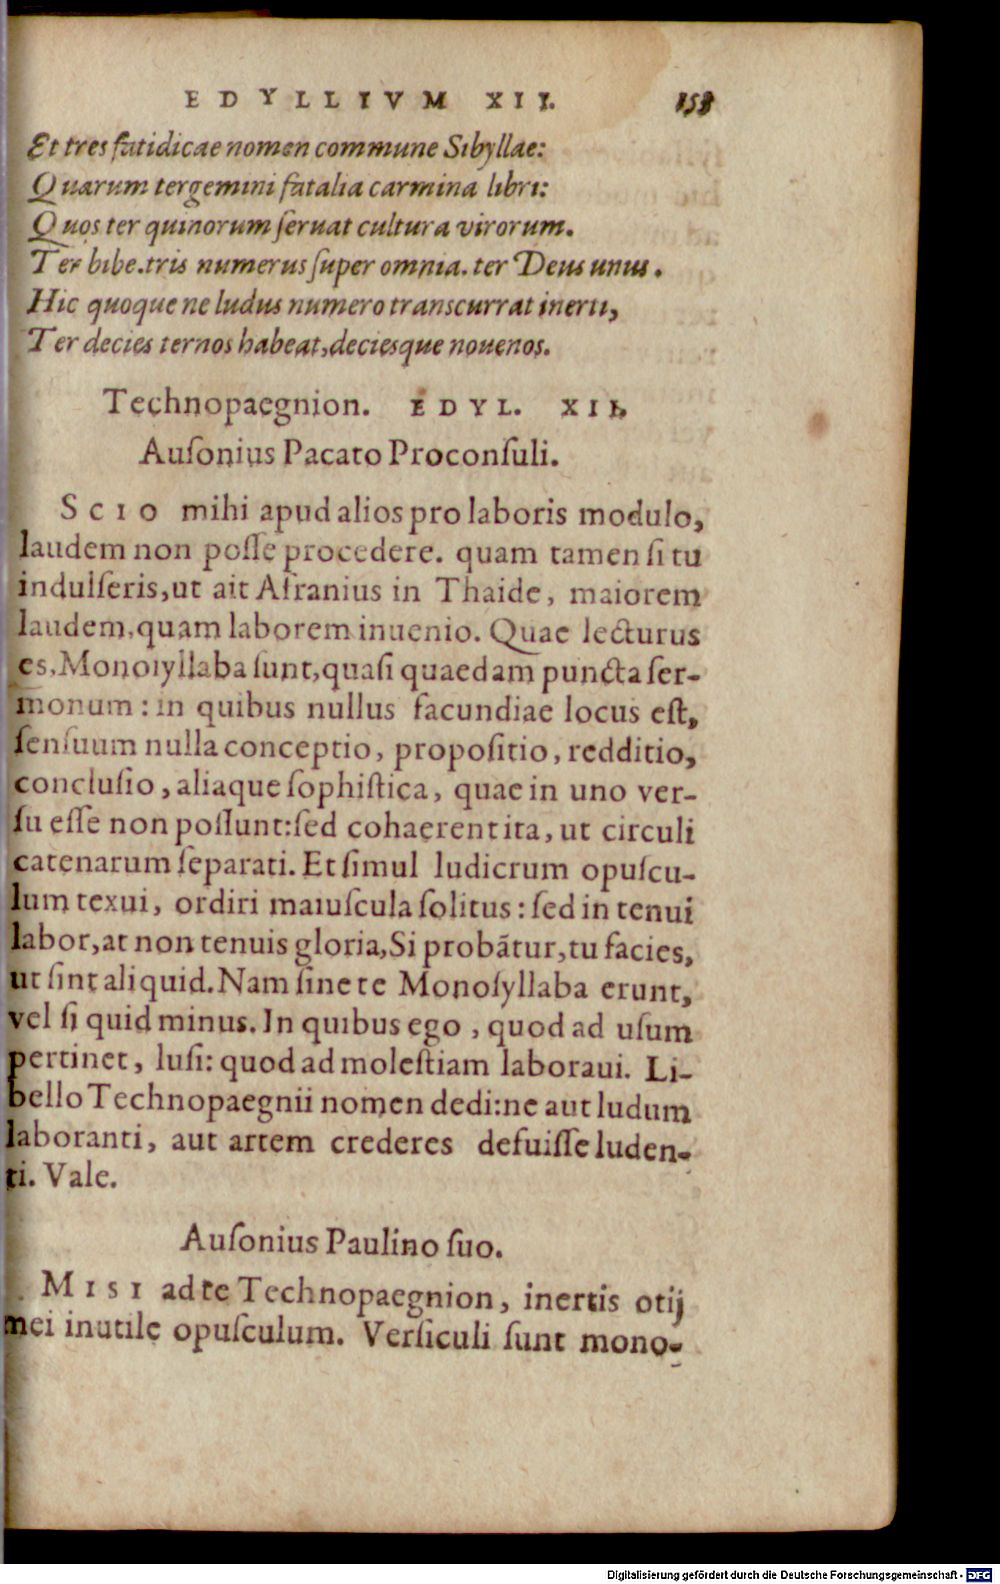 EDYLLIVM XII. 158
Et tres fatidicae nomen commune Sibyllae:
Quarum tergemini fatalia carmina libri:
Quos ter quinorum ſeruat cultura virorum.
Ter bibe. tris numerus ſuper omnia. ter Deus unus.
Hic quoque ne ludus numero transcurrat inerti,
Ter decies ternos habeat, deciesque nouenos.
Technopaegnion. EDYL. XII.
Auſonius Pacato Proconſuli.
SCIO mihi apud alios pro laboris modulo,
laudem non poſſe procedere. quam tamen ſi tu
indulſeris, ut ait Afranius in Thaide, maiorem
laudem, quam laborem inuenio. Quae lecturus
es, Monoſyllaba ſunt, quaſi quaedam puncta ſer-
monum: in quibus nullus facundiae locus eſt,
ſenſuum nulla conceptio, propoſitio, redditio,
concluſio, aliaque ſophiſtica, quae in uno ver-
ſu eſſe non poſſunt: ſed cohaerent ita, ut circuli
catenarum ſeparati. Et ſimul ludicrum opuſcu-
lum texui, ordiri maiuſcula ſolitus: ſed in tenui
labor, at non tenuis gloria, Si probãtur, tu facies,
ut ſint aliquid. Nam ſine te Monoſyllaba erunt,
vel ſi quid minus. In quibus ego, quod ad uſum
pertinet, luſi: quod ad moleſtiam laboraui. Li-
bello Technopaegnii nomen dedi: ne aut ludum
laboranti, aut artem crederes defuiſſe luden-
ti. Vale.
Auſonius Paulino ſuo.
MISI ad te Technopaegnion, inertis otij
mei inutile opuſculum. Verſiculi ſunt mono-
Digitalisierung gefördert durch die Deutsche Forschungsgemeinschaft - DFG